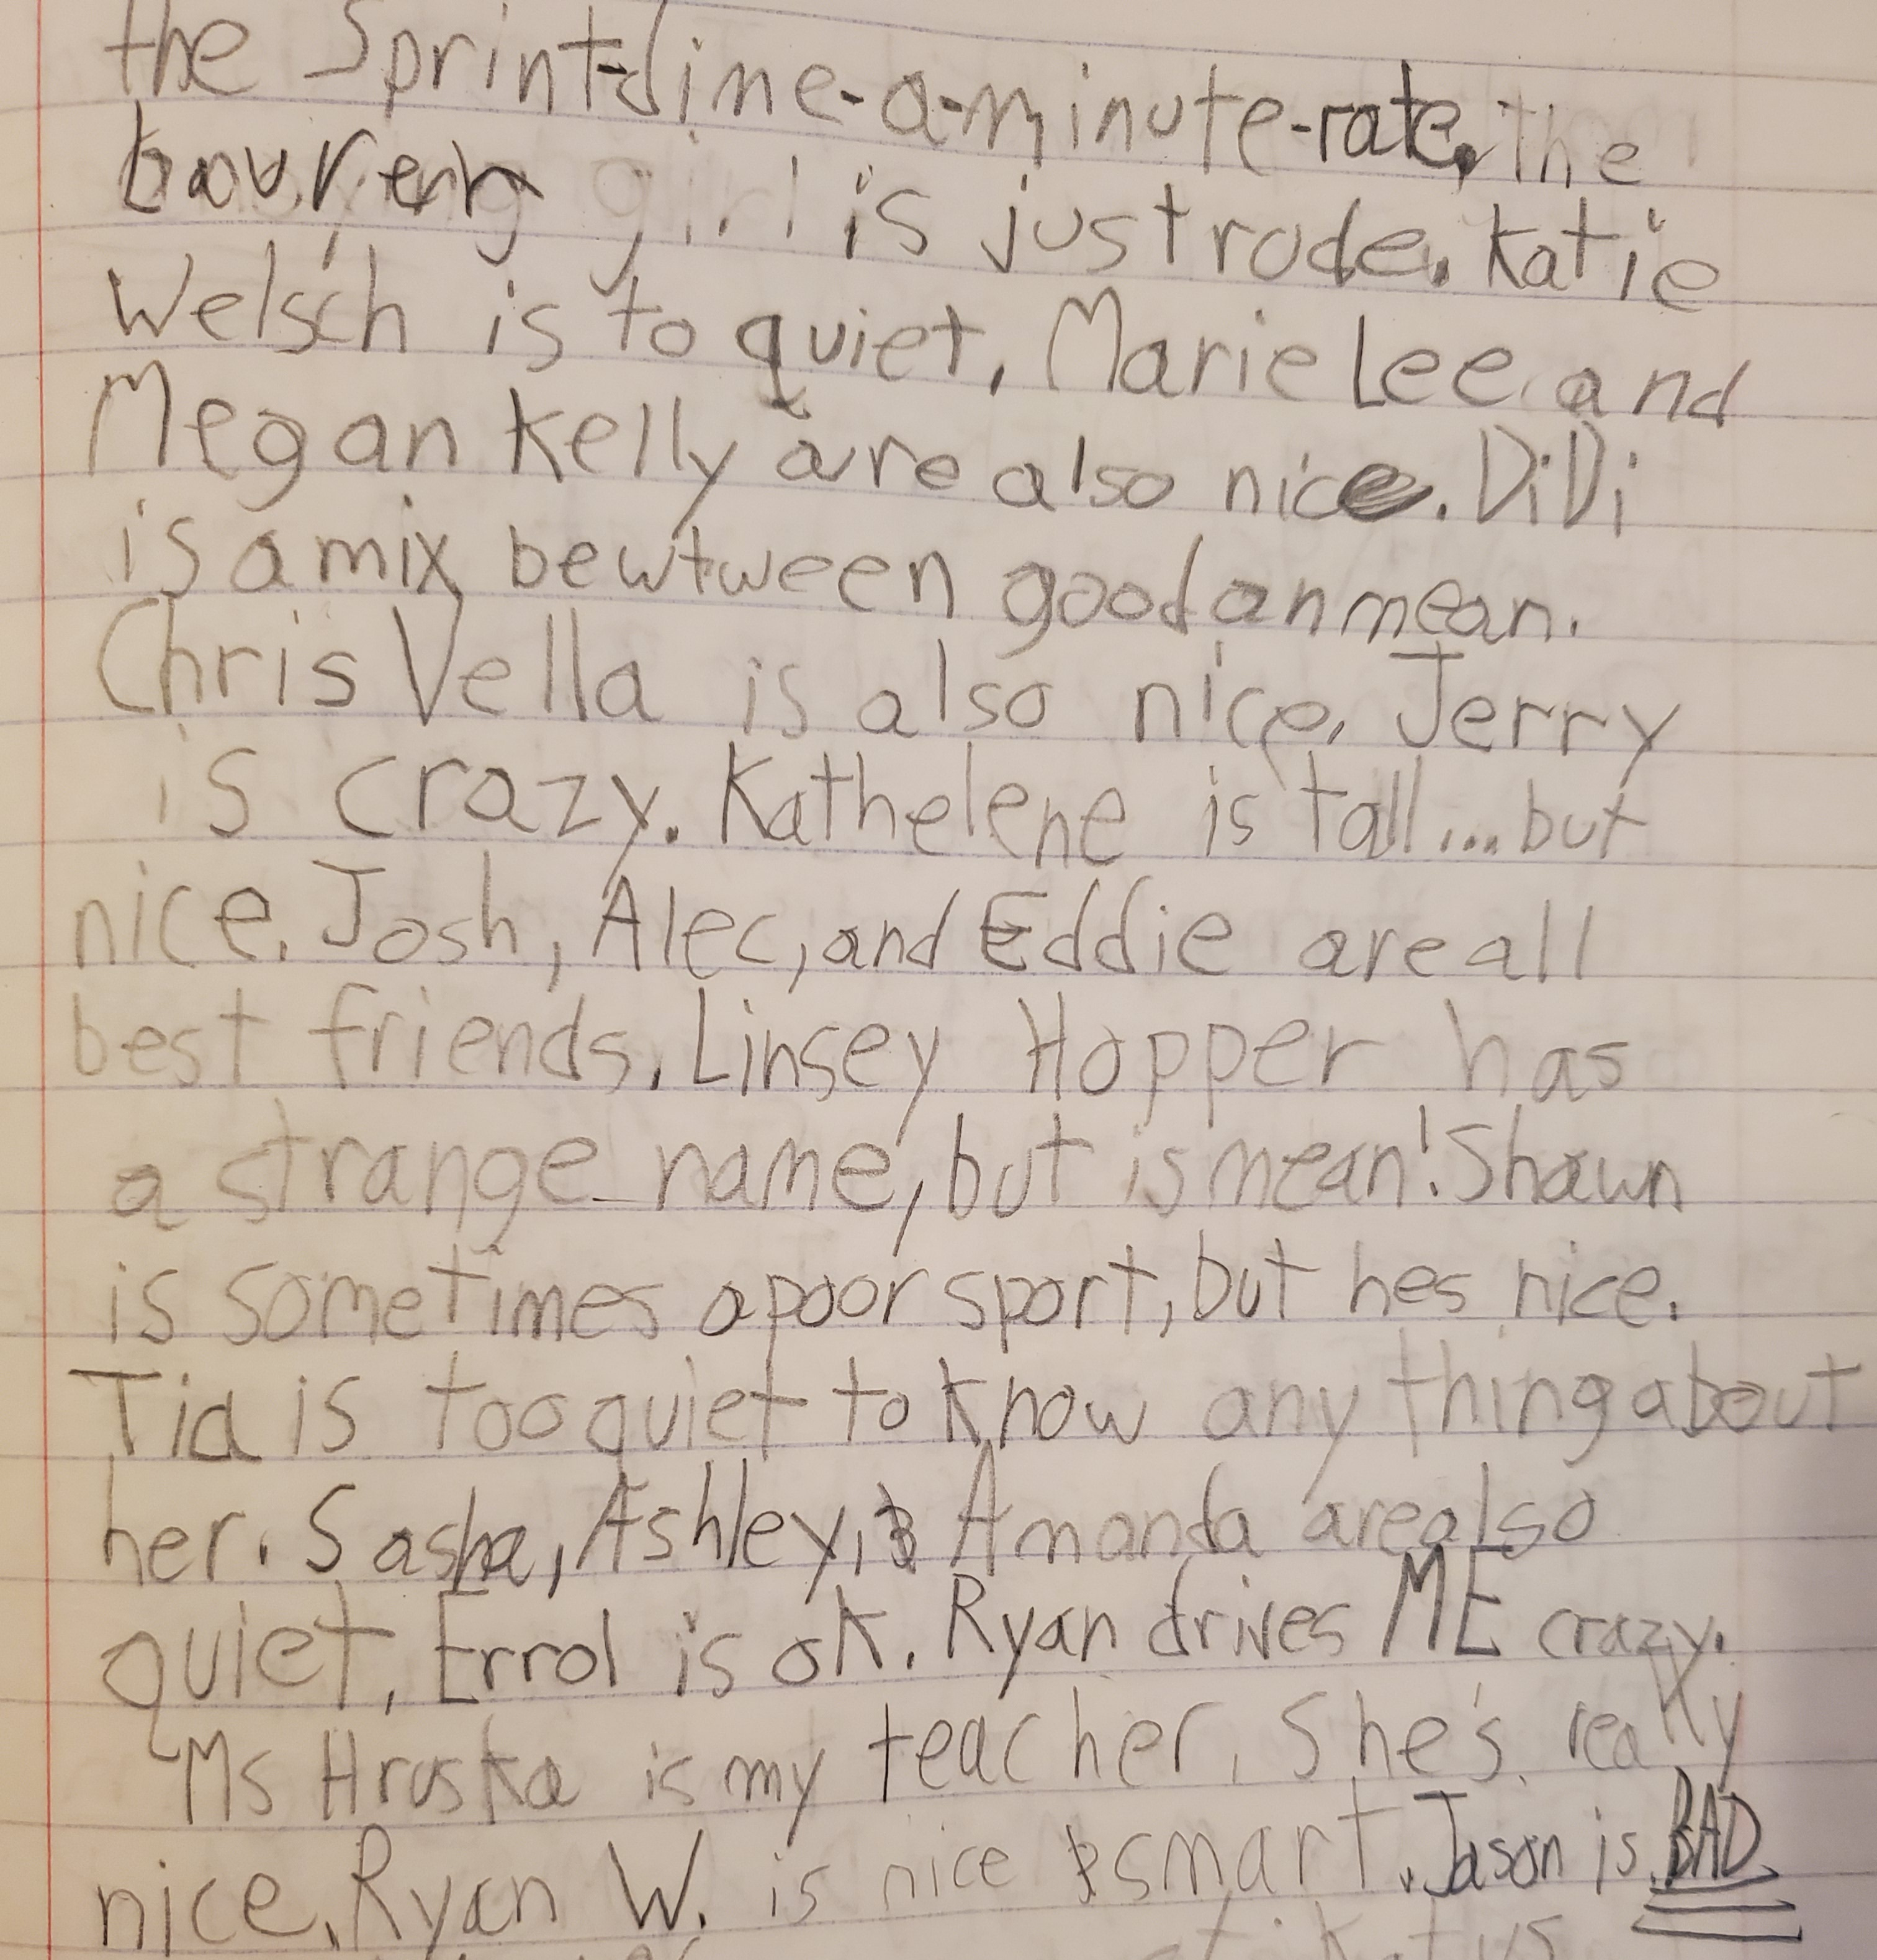 the Sprint-dime-a-minute-rate, the
girl is just rude. Katie
Welsch is to quiet, Marie Lee and
Megan Kelly are also nice. DiDi
is a mix bewtween good an mean.
Chris Vella is also nice. Jerry
is crazy. Kathelene is tall...but
nice. Josh, Alec, and Eddie are all
best friends. Linsey Hopper has
a strange name, but is mean! Shawn
is sometimes a poor sport, but hes nice.
Tia is too quiet to know any thing about
her. Sasha, Ashley, & Amanda are also
quiet, Errol is ok. Ryan drives ME crazy.
Ms Hruska is my teacher. She's really
nice. Ryan W. is nice & smart. Jason is BAD